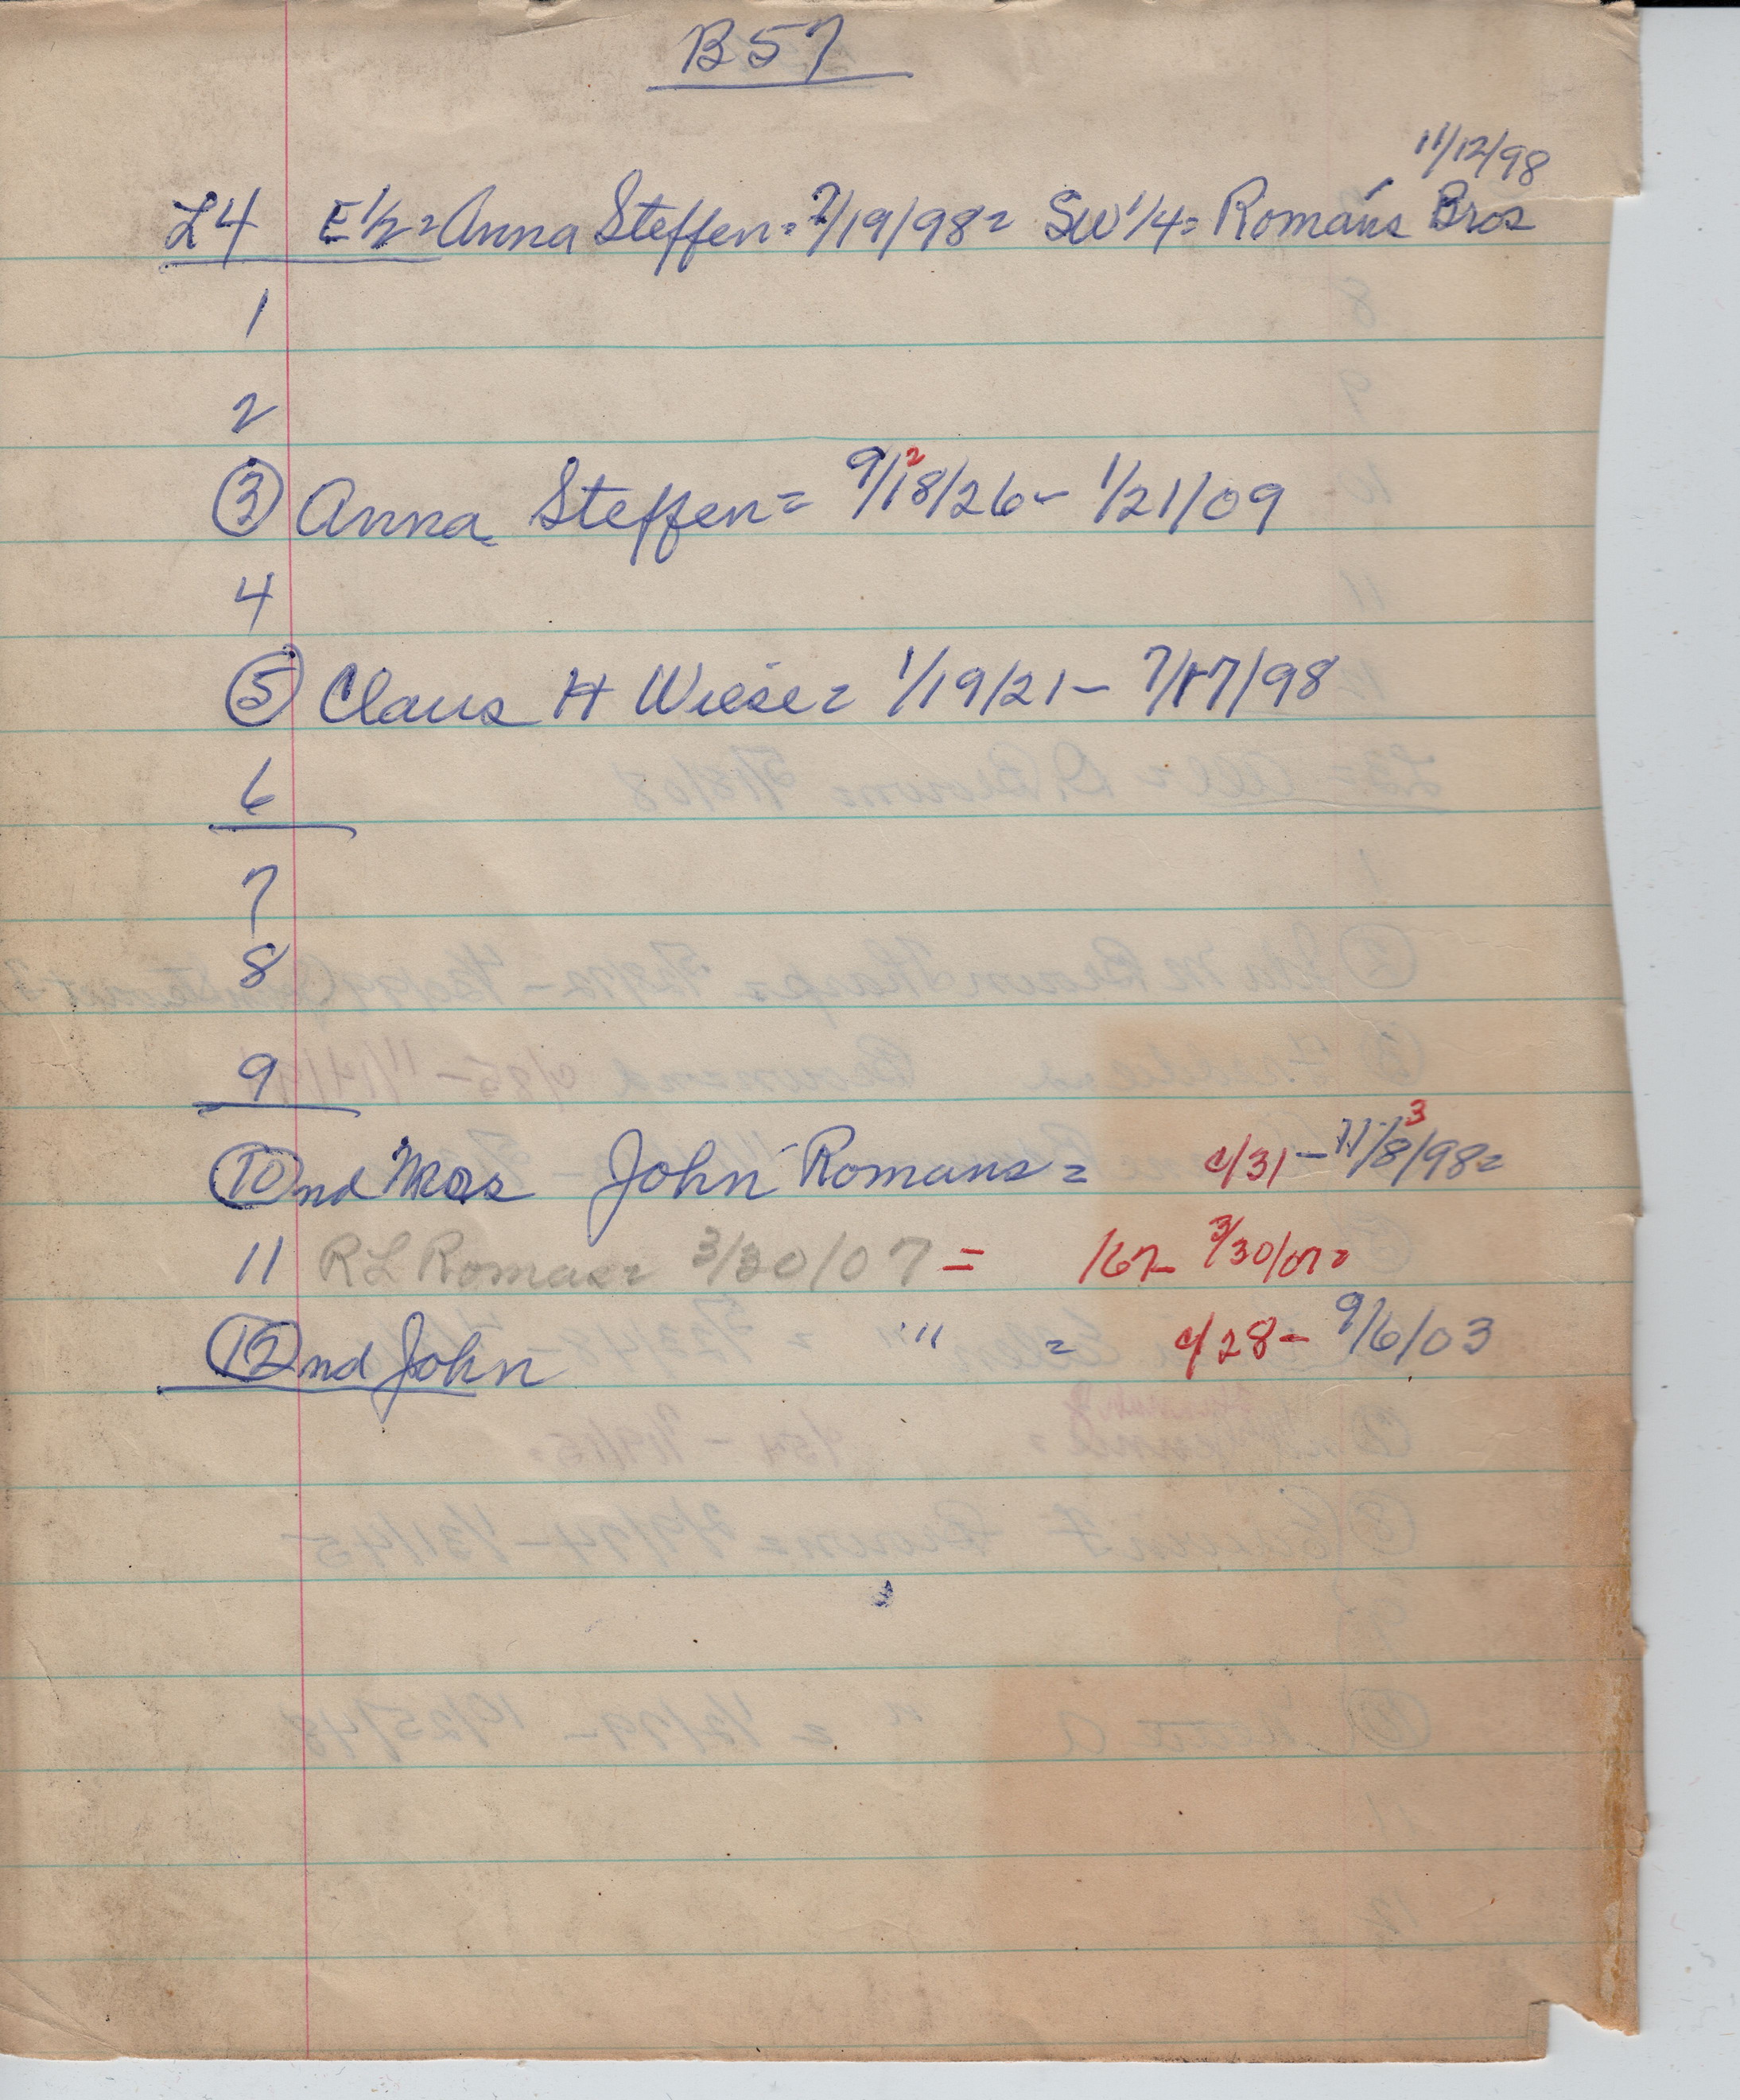 B57
11/12/98
L4 E½ = Anna Steffen = 7/19/98 = SW 1/4 = Romans Bros
1
2
3 Anna Steffen = 9/128/26 - 1/21/09
4
5 Claus H Wiese = 1/19/21 - 7/17/98
6
7
8
9
10 nd Mrs John Romans = c/31 - 11/8/98 =
11 RL Romans = 3/30/07 = 3/30/07 =
12 nd John " = c/28 - 9/6/03